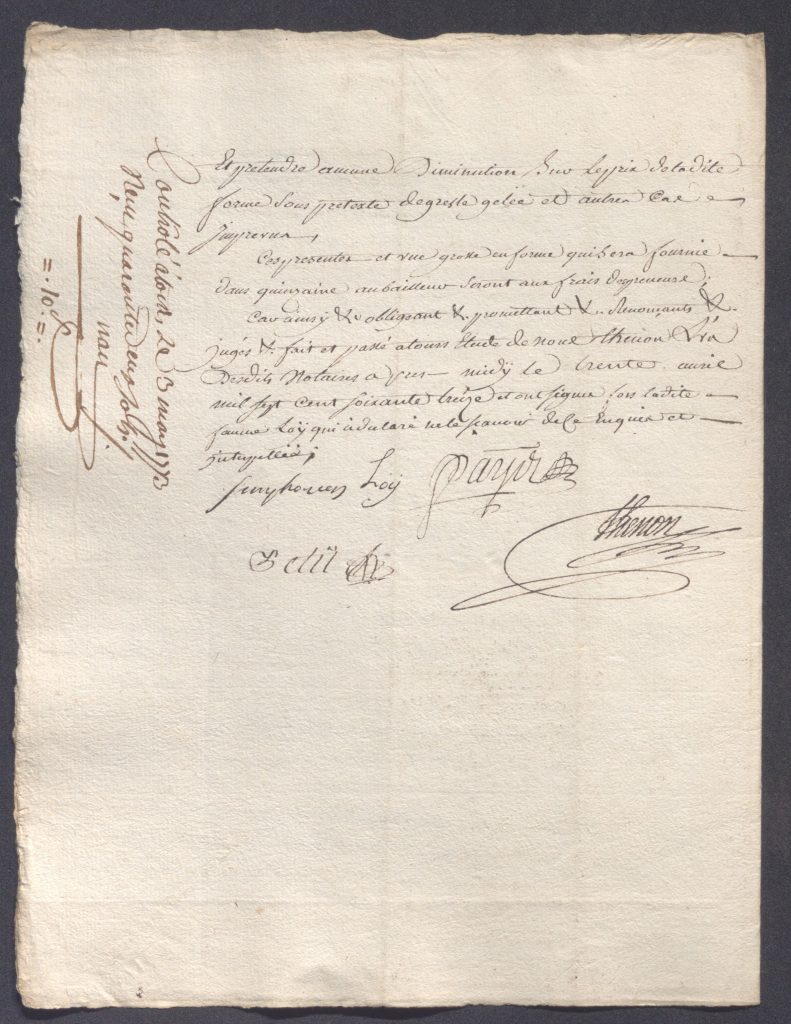 Et pretendre aucune Diminution Sur Le prix de ladite
ferme Sous pretexte de gresle gelée et autres Cas
Imprevus,
Ces presentes et une grosse en forme qui Sera fournie
dans quinzaine au bailleur Seront aux frais des preneurs;
Car ainsy &c obligeant &c promettant &c Renonçants &c
jugés &c fait et passé a tours Etude de nous thenon L'un
Desdits Notaires apres midy le trente avril
mil sept cent soixante treize et ont signé fors ladite
femme Loÿ qui a declaré ne le sçavoir de ce Enquise et
Interpellée;
Loÿ
thenon
Petit
Controlé a tours, Le 3 may 1773
Reçu quarante
nau
=. 10 ſ .=